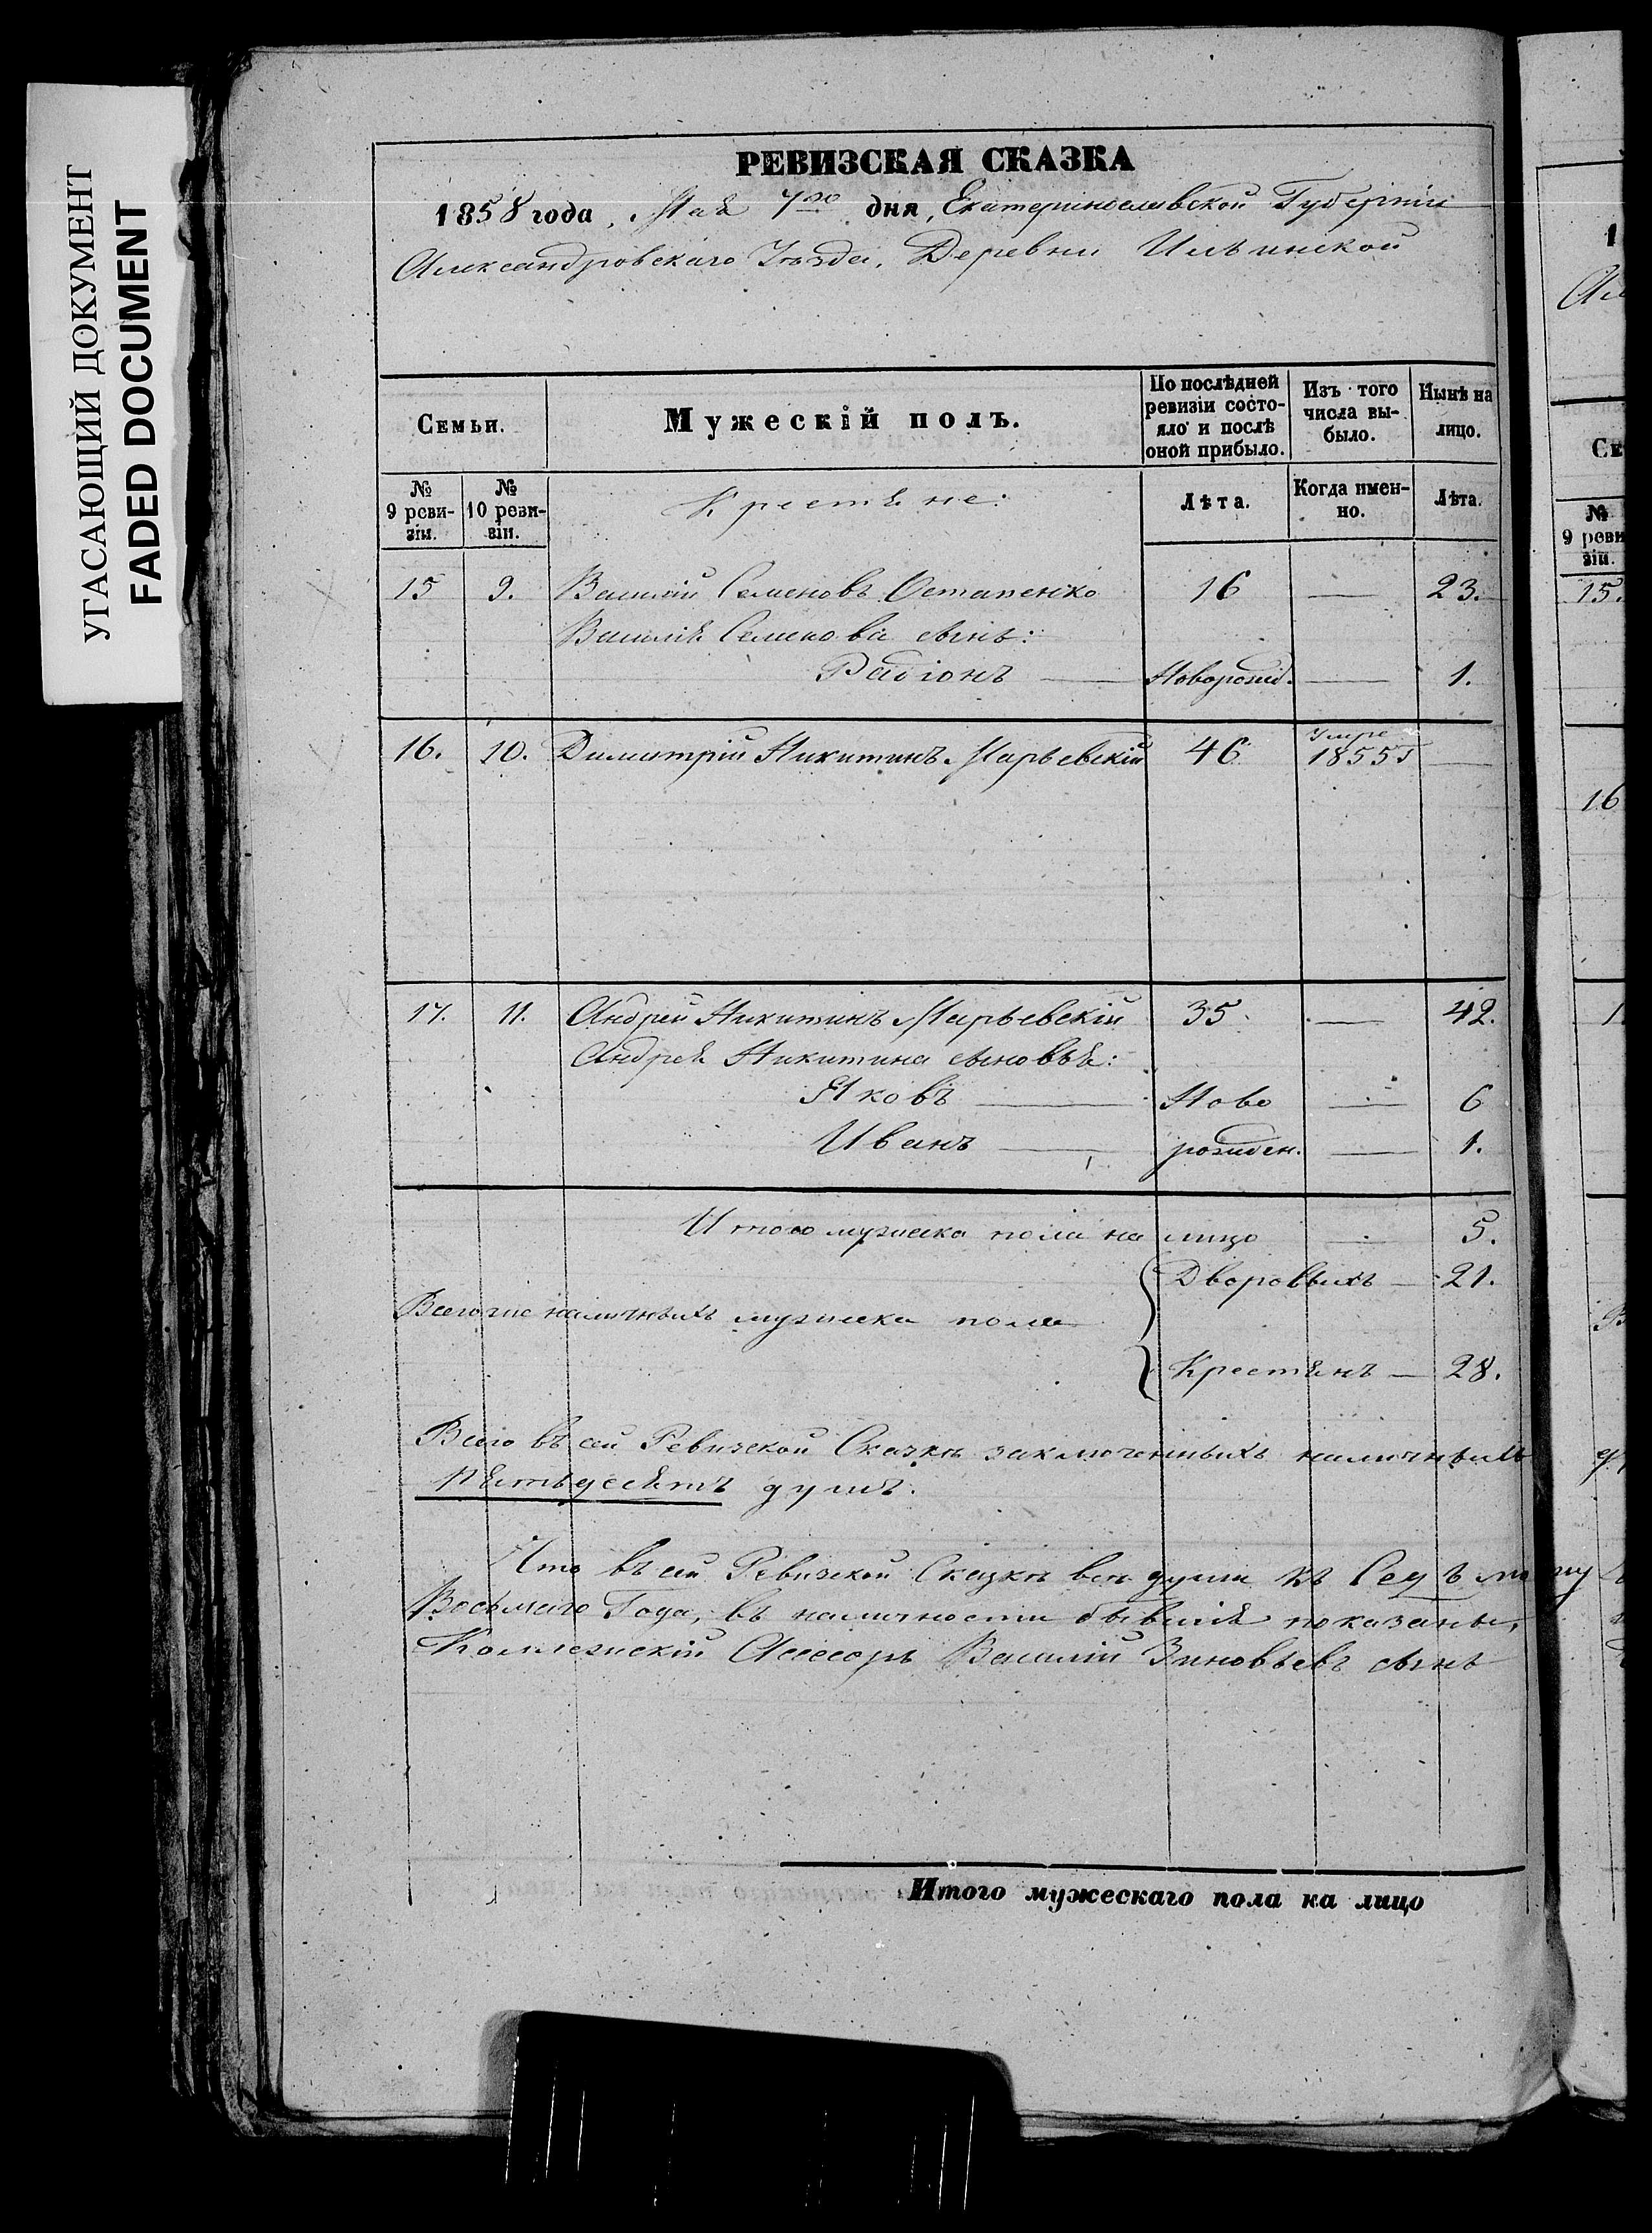 УГАСАЮЩИЙ ДОКУМЕНТ
FADED DOCUMENT
РЕВИЗСКАЯ СКАЗКА
1858 года, Мая 7го дня, Екатеринославской Губерніи
Александровскаго Уѣзда, Деревни Ильинской
Семьи. Мужескій полъ. По послѣдней ревизіи состояло и послѣ оной прибыло. Изъ того числа выбыло. Нынѣ на лицо.
№ 9 ревизіи. № 10 ревизіи. Крестяне: Лѣта. Когда именно. Лѣта.
15 9. Василій Семеновъ Остапенко 16 — 23.
Василія Семенова сынъ:
Радіонъ — Новорожд. — 1.
16. 10. Димитрій Никитинъ Марьевскій 46 Умре 1855 —
17. 11. Андрей Никитинъ Марьевскій 35. — 42.
Андрея Никитина сыновья:
Яковъ — Ново — 6
Иванъ — рожден. — 1.
Итого мужеска пола на лицо — 5.
Дворовыхъ — 21.
Всего же наличныхъ мужеска пола
Крестянъ — 28.
Всего въ сей Ревизской Сказкѣ заключенныхъ наличныхъ
пятьдесятъ душъ.
Что въ сей Ревизской Сказкѣ всѣ души по
Восьмаго Года, въ наличности бывшія показаны,
Коллежскій Асессоръ Василій Зиновьевъ сынъ
Итого мужескаго пола на лицо
1
Ал
Се
№
9 реви
зіи.
15.
16
1
В